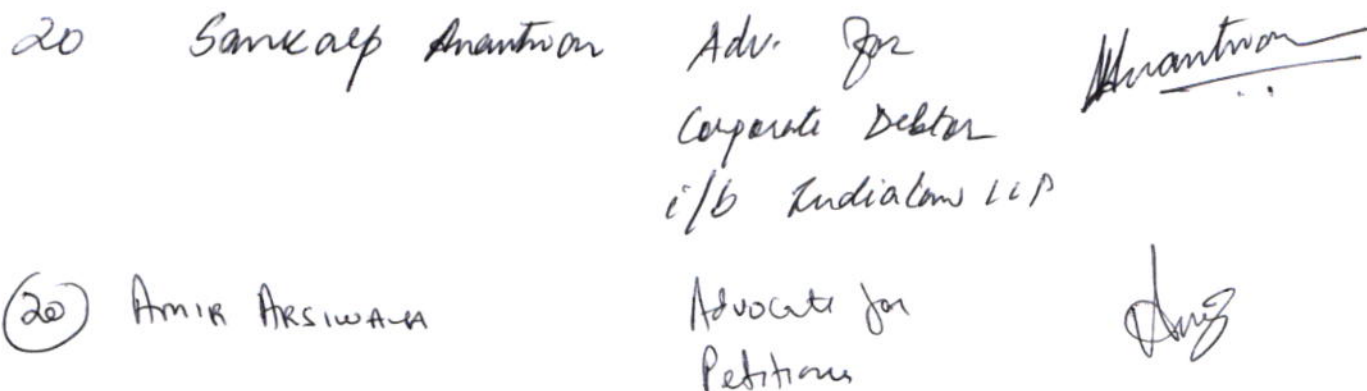 20 Sankalp Anantwar Adv. for Anantwar
Corporate Debtor
i/b Indialaw LLP
20 AMIR ARSIWALA Advocate for
Petitioner